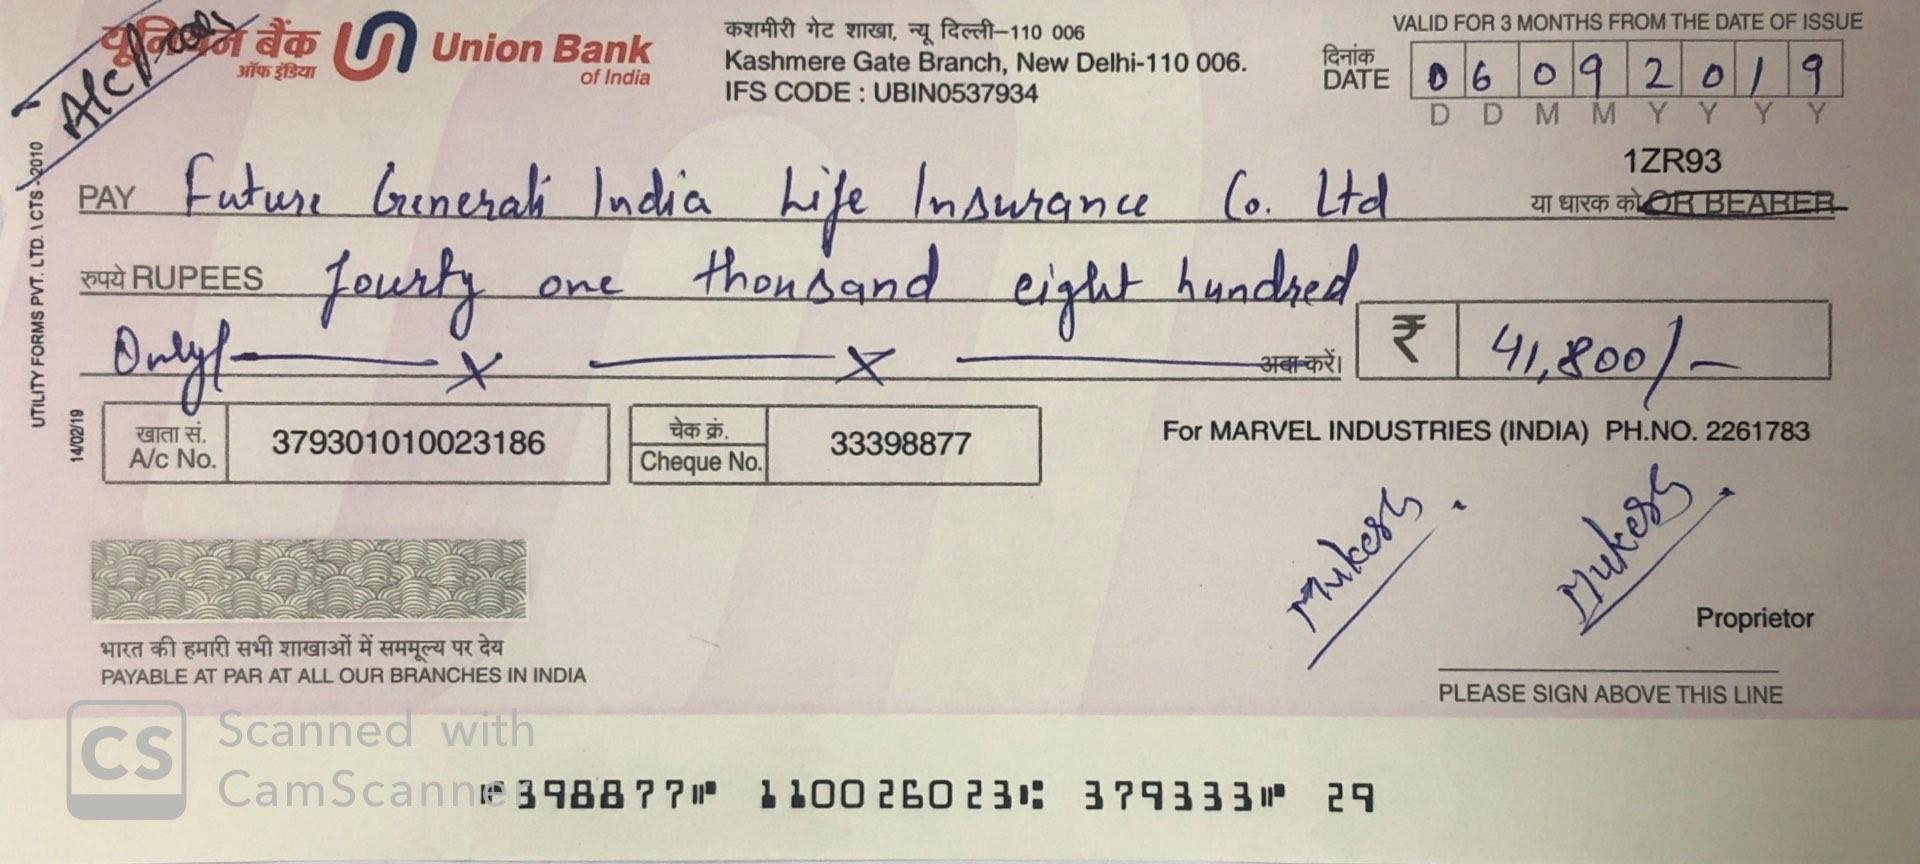 A/c Payee
यूनियन बैंक
ऑफ इंडिया
Union Bank
of India
कशमीरी गेट शाखा, न्यू दिल्ली–110 006
Kashmere Gate Branch, New Delhi-110 006.
IFS CODE : UBIN0537934
VALID FOR 3 MONTHS FROM THE DATE OF ISSUE
दिनांक
DATE 0 6 0 9 2 0 1 9
D D M M Y Y Y Y
1ZR93
PAY Future Generali India Life Insurance Co. Ltd या धारक को OR BEARER
रुपये RUPEES fourty one thousand eight hundred
Only/- x x अदा करें। ₹ 41,800/-
UTILITY FORMS PVT. LTD. \ CTS - 2010
14/02/19
खाता सं.
A/c No. 379301010023186
चेक क्रं.
Cheque No. 33398877
For MARVEL INDUSTRIES (INDIA) PH.NO. 2261783
Mukesh Mukesh
Proprietor
भारत की हमारी सभी शाखाओं में सममूल्य पर देय
PAYABLE AT PAR AT ALL OUR BRANCHES IN INDIA
PLEASE SIGN ABOVE THIS LINE
CS Scanned with
CamScanner
⑈398877⑈ 110026023⑆ 379333⑈ 29